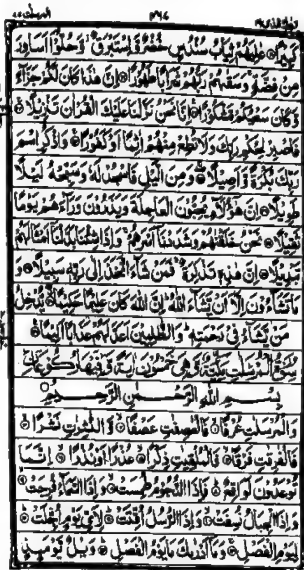 كَبِيرًا عٰلِيَهُمْ ثِيَابُ سُنْدُسٍ خُضْرٌ وَّاِسْتَبْرَقٌ وَّحُلُّوْٓا اَسَاوِرَ
مِنْ فِضَّةٍ وَسَقٰهُمْ رَبُّهُمْ شَرَابًا طَهُوْرًا اِنَّ هٰذَا كَانَ لَكُمْ جَزَآءً
وَّكَانَ سَعْيُكُمْ مَّشْكُوْرًا اِنَّا نَحْنُ نَزَّلْنَا عَلَيْكَ الْقُرْاٰنَ تَنْزِيْلًا
فَاصْبِرْ لِحُكْمِ رَبِّكَ وَلَا تُطِعْ مِنْهُمْ اٰثِمًا اَوْ كَفُوْرًا وَاذْكُرِ اسْمَ
رَبِّكَ بُكْرَةً وَّاَصِيْلًا وَمِنَ الَّيْلِ فَاسْجُدْ لَهٗ وَسَبِّحْهُ لَيْلًا
طَوِيْلًا اِنَّ هٰٓؤُلَآءِ يُحِبُّوْنَ الْعَاجِلَةَ وَيَذَرُوْنَ وَرَآءَهُمْ يَوْمًا
ثَقِيْلًا نَحْنُ خَلَقْنٰهُمْ وَشَدَدْنَآ اَسْرَهُمْ وَاِذَا شِئْنَا بَدَّلْنَآ اَمْثَالَهُمْ
تَبْدِيْلًا اِنَّ هٰذِهٖ تَذْكِرَةٌ فَمَنْ شَآءَ اتَّخَذَ اِلٰى رَبِّهٖ سَبِيْلًا وَ
مَا تَشَآءُوْنَ اِلَّآ اَنْ يَّشَآءَ اللّٰهُ اِنَّ اللّٰهَ كَانَ عَلِيْمًا حَكِيْمًا يُّدْخِلُ
مَنْ يَّشَآءُ فِيْ رَحْمَتِهٖ وَالظّٰلِمِيْنَ اَعَدَّ لَهُمْ عَذَابًا اَلِيْمًا
بِسْمِ اللّٰهِ الرَّحْمٰنِ الرَّحِيْمِ
وَالْمُرْسَلٰتِ عُرْفًا فَالْعٰصِفٰتِ عَصْفًا وَّالنّٰشِرٰتِ نَشْرًا
فَالْفٰرِقٰتِ فَرْقًا فَالْمُلْقِيٰتِ ذِكْرًا عُذْرًا اَوْ نُذْرًا اِنَّمَا
تُوْعَدُوْنَ لَوَاقِعٌ فَاِذَا النُّجُوْمُ طُمِسَتْ وَاِذَا السَّمَآءُ فُرِجَتْ
وَاِذَا الْجِبَالُ نُسِفَتْ وَاِذَا الرُّسُلُ اُقِّتَتْ لِاَيِّ يَوْمٍ اُجِّلَتْ
لِيَوْمِ الْفَصْلِ وَمَآ اَدْرٰىكَ مَا يَوْمُ الْفَصْلِ وَيْلٌ يَّوْمَئِذٍ